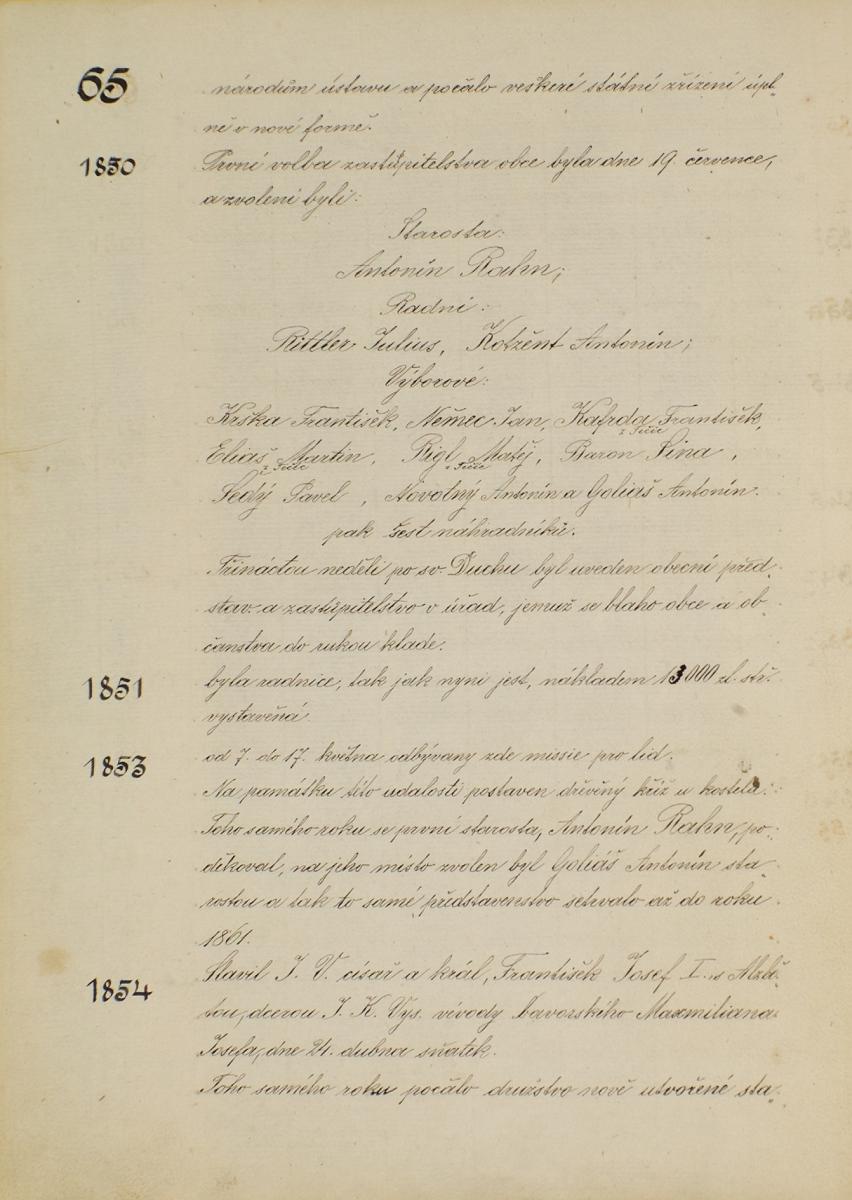 65
národům ústavu a počalo veškeré státní zřízení úpl-
ně v nové formě.
1850
První volba zastupitelstva obce byla dne 19. července,
a zvoleni byli:
Starosta:
Antonín Rahn;
Radní:
Rittler Julius, Kotzent Antonín;
Výborové:
Krška František, Němec Jan, Kafrda František,
Eliáš Martin, Rigl Matěj, Baron Sina,
Šedý Pavel, Novotný Antonín a Goliáš Antonín.
pak šest náhradníků.
Třináctou neděli po sv. Duchu byl uveden obecní před-
stav. a zastupitelstvo v úřad, jemuž se blaho obce a ob-
čanstva do rukou klade.
1851
byla radnice, tak jak nyní jest, nákladem 13000 zl. stř.
vystavěná.
1853
od 7. do 17. května odbývany zde missie pro lid.
Na památku této udalosti postaven dřvěný kříž u kostela.
Toho samého roku se první starosta, Antonín Rahn, po-
děkoval, na jeho místo zvolen byl Goliáš Antonín sta-
rostou a tak to samé představenstvo setrvalo až do roku
1861.
1854
Slavil J. V. císař a král, František Josef I. s Alžbě-
tou, dcerou J. K. Vys. vívody bavorského Maxmiliana
Josefa, dne 24. dubna sňatek.
Toho samého roku počalo družstvo nově utvořené sta-